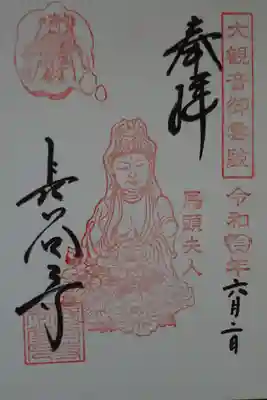 奉拝
大観音御霊験
令和 年六月二日
馬頭夫人
長谷寺